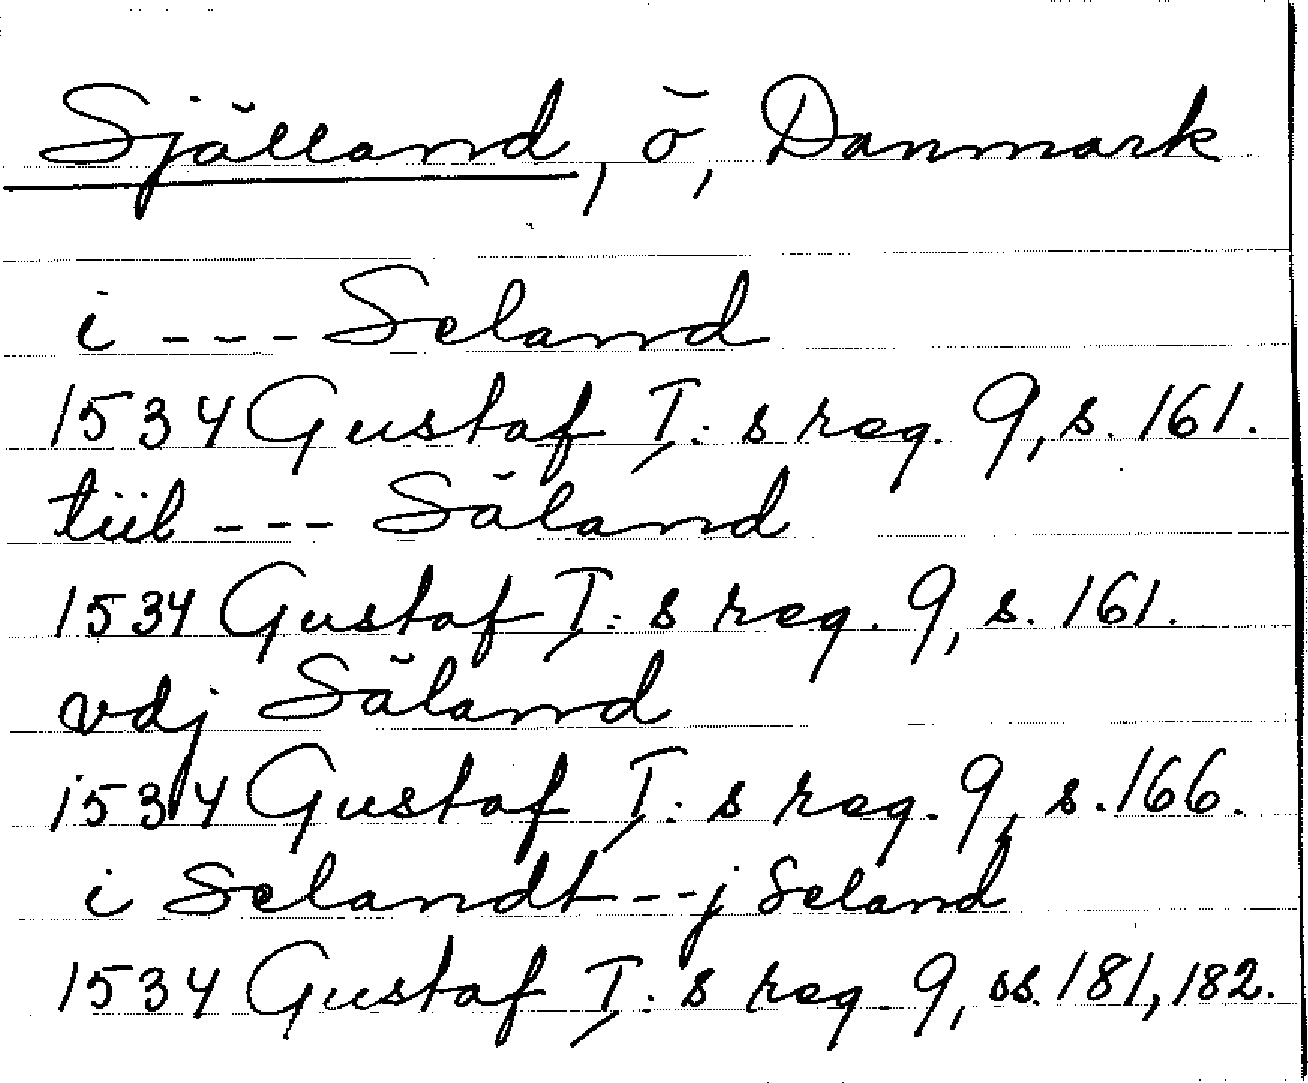 Själland, ö, Danmark
i --- Seland
1534 Gustaf I: s reg. 9, s. 161.
tiil --- Säland
1534 Gustaf I: s reg. 9, s. 161.
vdj Säland
1534 Gustaf I: s reg. 9, s. 166.
i Selandt --- j Seland
1534 Gustaf I: s reg. 9, ss. 181, 182.